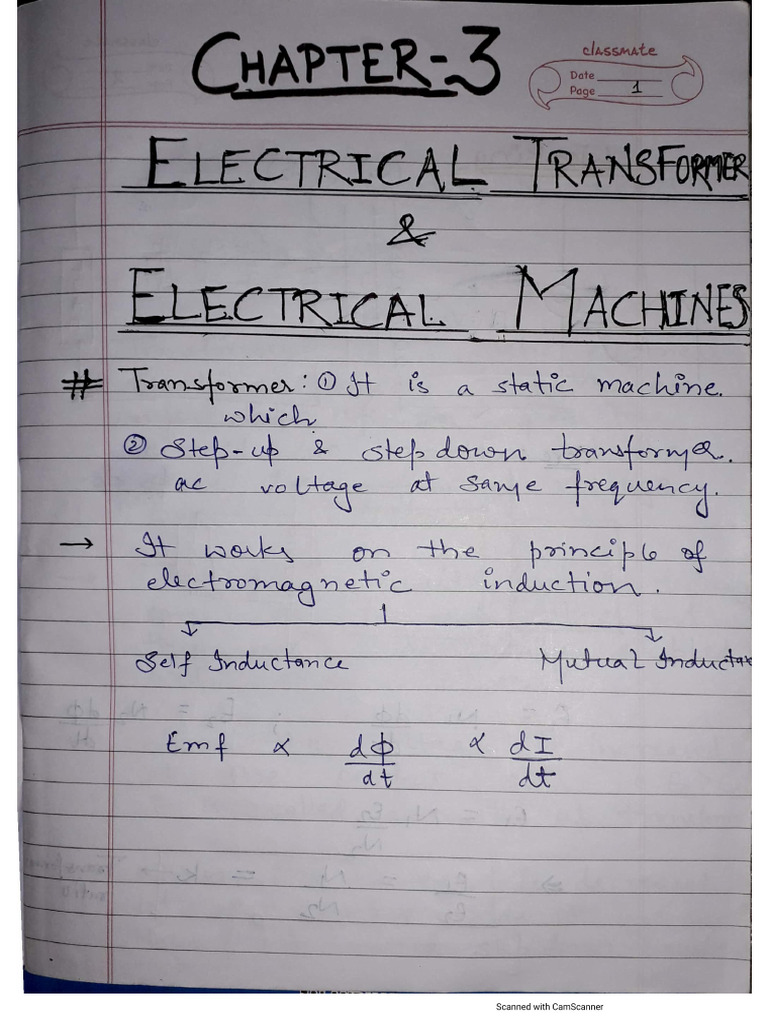 CHAPTER-3
classmate
Date
Page 1
ELECTRICAL TRANSFORMER
&
ELECTRICAL MACHINES
# Transformer: ① It is a static machine.
which
② Step-up & step down transformer.
ac voltage at same frequency.
→ It works on the principle of
electromagnetic induction.
Self Inductance Mutual Inductan
Emf ∝ dΦ/dt ∝ dI/dt
Scanned with CamScanner